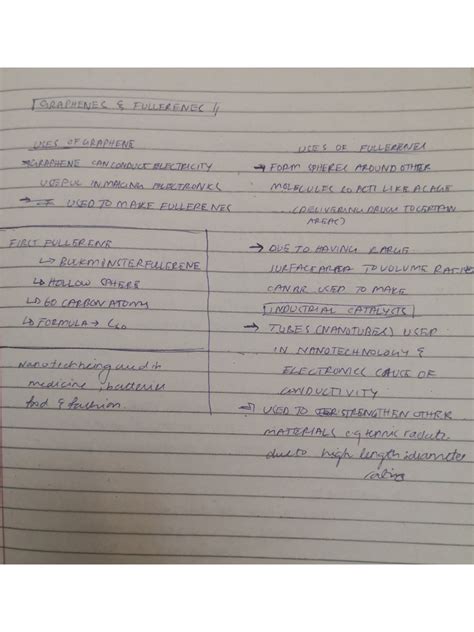 GRAPHENES & FULLERENES
USES OF GRAPHENE
→GRAPHENE CAN CONDUCT ELECTRICITY
USEFUL IN MAKING ELECTRONICS
→ USED TO MAKE FULLERENES
FIRST FULLERENE
↳ BUCKMINSTERFULLERENE
↳ HOLLOW SPHERE
↳ 60 CARBON ATOMS
↳ FORMULA → C60
Nanotech being used in
medicine,
food & fashion.
USES OF FULLERENES
→ FORM SPHERES AROUND OTHER
MOLECULES to ACT LIKE A CAGE
(DELIVERING DRUGS TO CERTAIN
AREAS)
→ DUE TO HAVING LARGE
SURFACE AREA TO VOLUME RATIOS
CAN BE USED TO MAKE
INDUSTRIAL CATALYSTS
→ TUBES (NANOTUBES) USED
IN NANOTECHNOLOGY &
ELECTRONICS CAUSE OF
CONDUCTIVITY
→ USED TO STRENGTHEN OTHER
MATERIALS e.g tennis rackets
due to high length:diameter
ratios